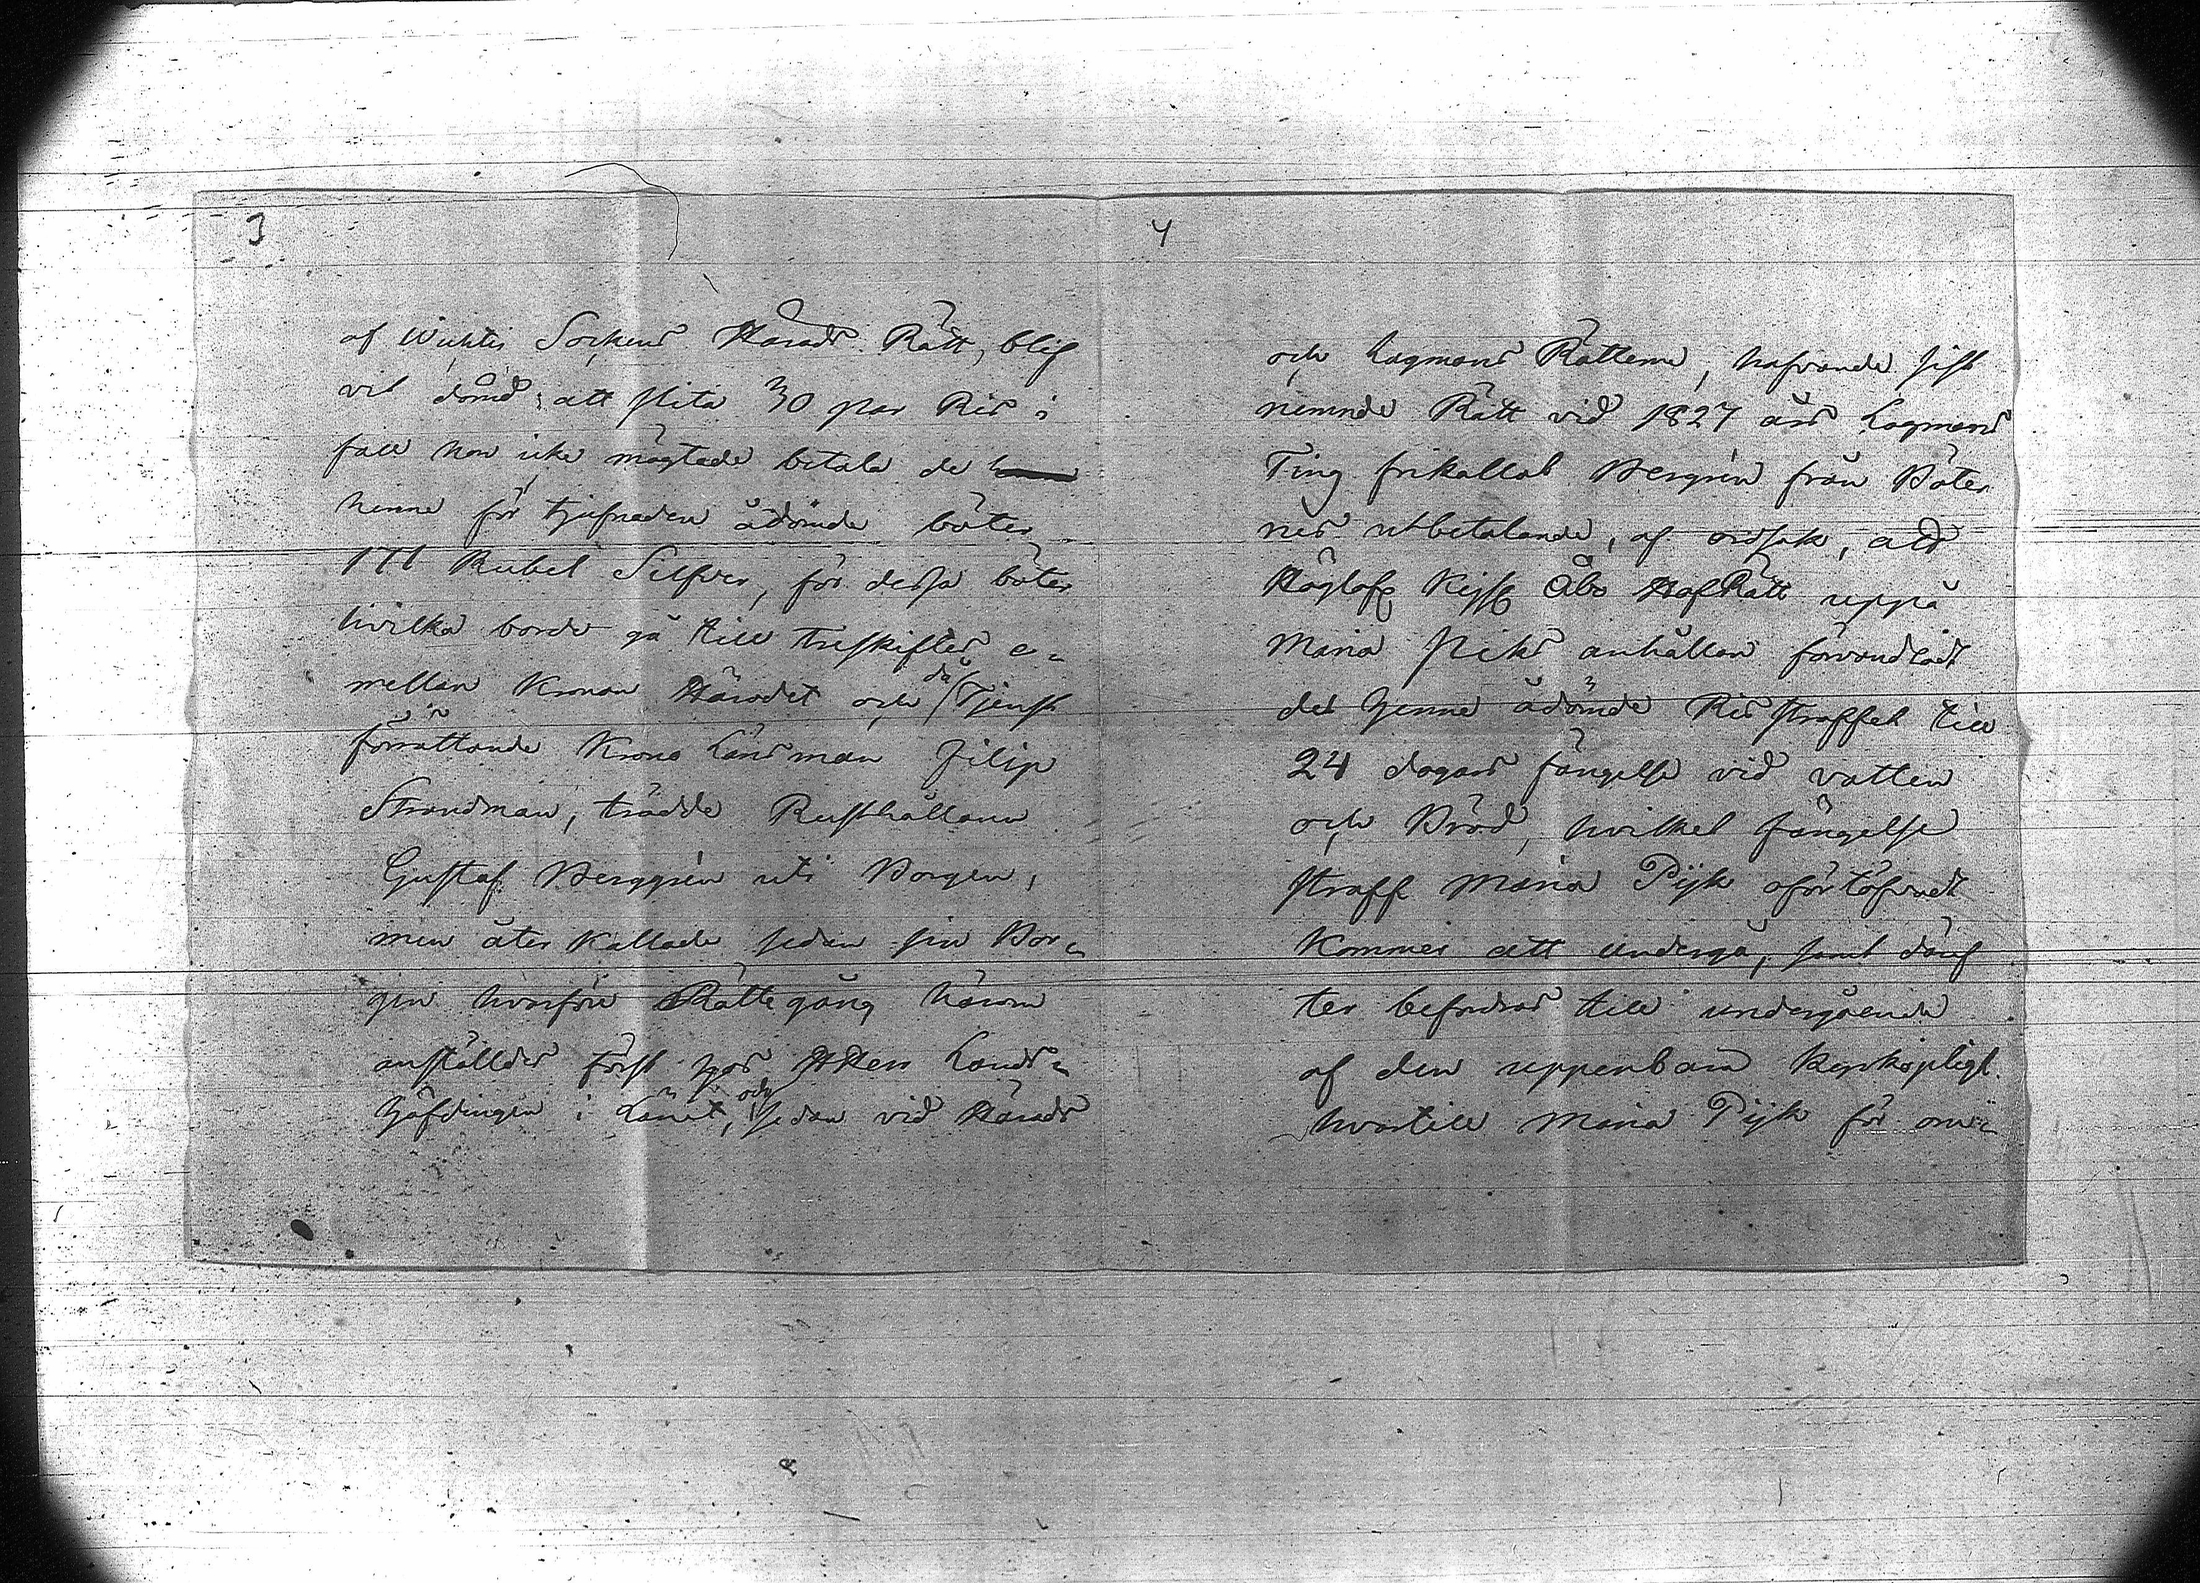 3
af Wichtis Sockens Härads Rätt, blif
vit dömd att slita 30 par Ris i
fall hon icke mägtade betala de
henne för tjufnaden ådömde böter
171 Rubel Silfver, för dessa böter
hvilka borde gå till treskiftes e-
mellan Kronan Häradet och då Tjenst
förrättande Krono Länsman Filip
Strandman, trädde Rusthållaren
Gustaf Berggrén uti Borgen,
men återkallade sedan sin Bor-
gen hvarföre Rättegång härom
anställdes först hos Herr Lands-
höfdingen i Länet, och sedan vid Härads
4
och Lagmans Rätterne, hafvande sist
nemnde Rätt vid 1827 års Lagmans
Ting frikallat Bergrén från Böter
nes utbetalande, af orsak, att
Höglofl Kejserl Åbo HofRätt uppå
Maria Piks anhållan förvandlat
det henne ådömde Ris straffet till
24 dagars fängelse vid vatten
och Bröd, hvilket fängelse
straff Maria Pijk oförtöfvadt
kommer att undergå, samt däref
ter befordras till undergående
af den uppenbara Kyrkopligt
hvartill Maria Pijk för